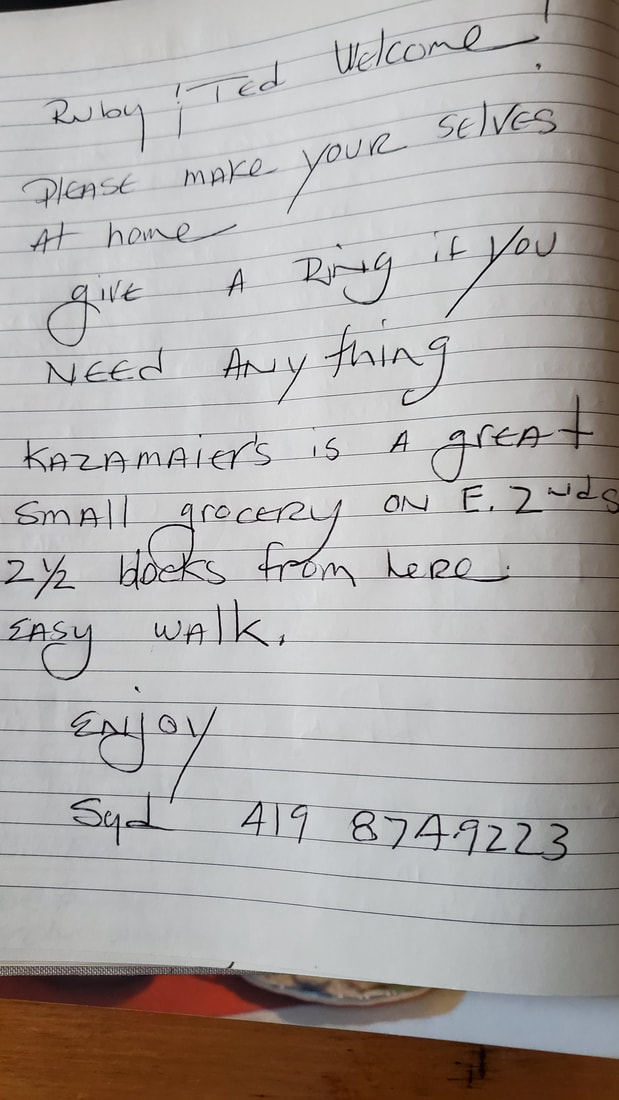 Ruby & Ted Welcome!
PLEASE make YOUR SElVES
At home
give A Ring if you
NEEd ANything
KAZAMAier's is A greAt
SmAll grocery ON E. 2nd S
2 1/2 blocks from here.
EASy WAlk.
ENjoy
Syd 419 874-9223